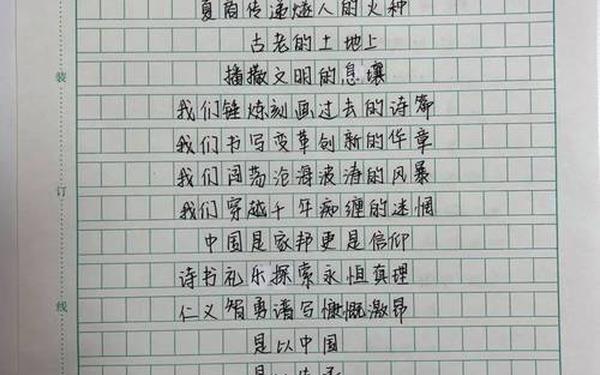 夏商传递燧人的火种
古老的土地上
播撒文明的息壤
我们锤炼刻画过去的诗篇
我们书写变革创新的华章
我们闯荡沧海波涛的风暴
我们穿越千年痴缠的迷惘
中国是家邦更是信仰
诗书礼乐探索永恒真理
仁义智勇谱写慷慨激昂
是以中国
是以传承
装
订
线